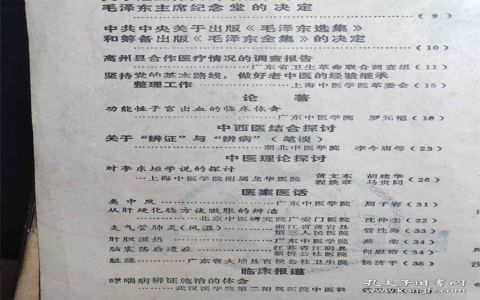 毛泽东主席纪念堂的决定 (9)
中共中央关于出版《毛泽东选集》
和筹备出版《毛泽东全集》的决定
(10)
高州县合作医疗情况的调查报告
广东省卫生革命联合调查组 (11)
坚持党的基本路线，做好老中医的经验继承
整理工作 上海中医学院革委会 (15)
论著
功能性子宫出血的临床体会
广东中医学院 罗元恺 (18)
中西医结合探讨
关于“辨证”与“辨病”（笔谈）
湖北中医学院 李今庸等 (23)
中医理论探讨
对李东垣学说的探讨
上海中医学院附属龙华医院 黄文东 胡建华 (26)
程焕章 马贵同
医案医话
类中风 广东中医学院 周子容 (31)
从肝硬化腹水谈臌胀的辨治
北京中医研究院广安门医院 沈仲圭 (32)
支气管肺炎（风温） 浙江省黄岩县
第三人民医院 管性海 (33)
肝胆湿热 广东中医学院 蔡荣 (34)
脑震荡后遗症 江苏省江阴县
新桥公社医院
脏躁 广东省大埔县百侯公社卫生院 杨济平 (37)
临床报道
哮喘病辨证施治的体会
武汉医学院第二附属医院中医科